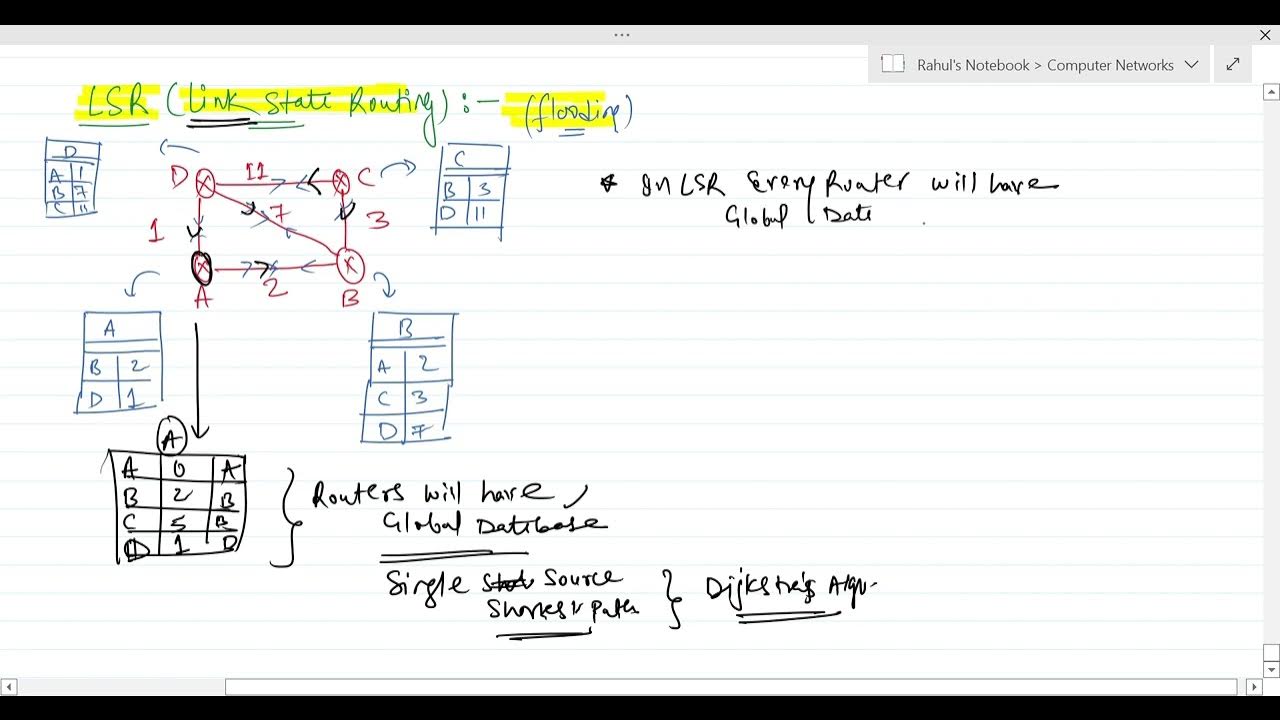 Rahul's Notebook > Computer Networks
LSR (Link State Routing) :- (flooding)
D
A 1
B 7
C 11
D 11 C
7
1 3
A 2 B
C
B 3
D 11
* In LSR Every Router will have
Global Date
A
B 2
D 1
B
A 2
C 3
D 7
A
A 0 A
B 2 B
C 5 B
D 1 D
Routers will have
Global Database
Single Source
Shortest Path
Dijkstra's Algo